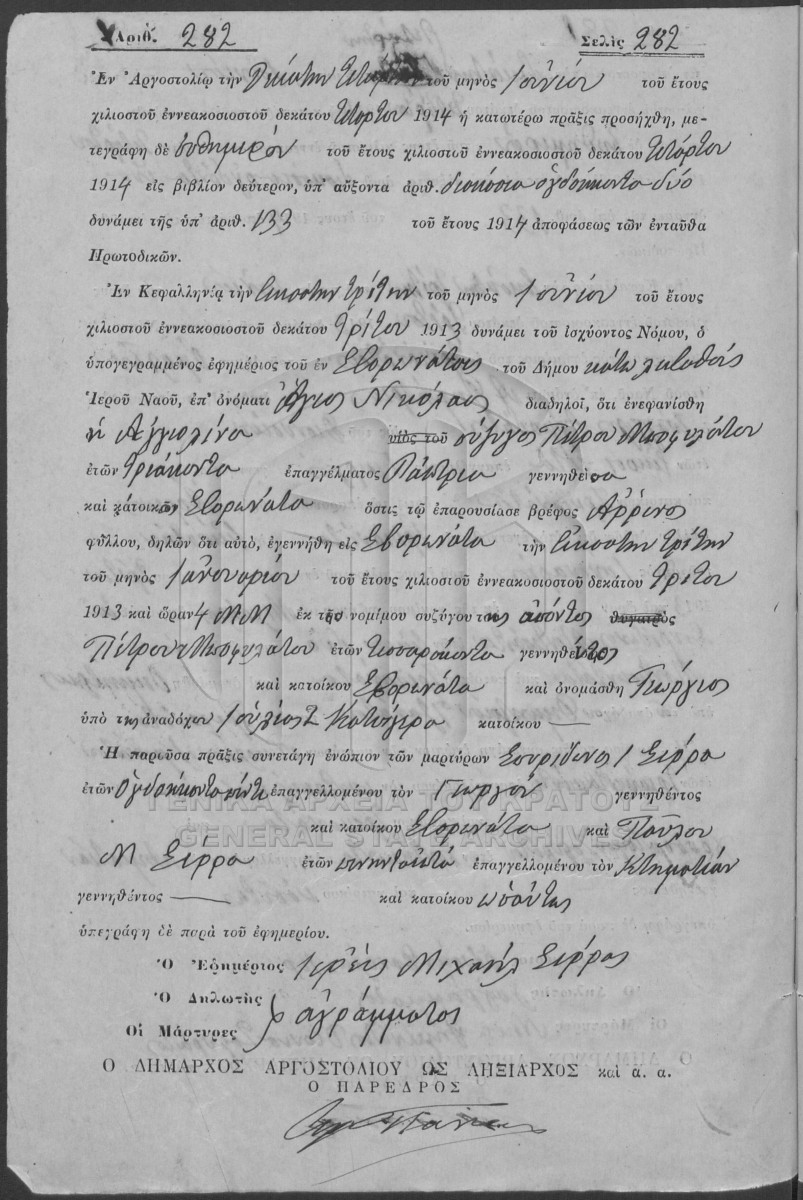 Ἀριθ. 282 Σελὶς 282
Ἐν Ἀργοστολίῳ τὴν Δεκάτην Τετάρτην τοῦ μηνὸς Ἰουνίου τοῦ ἔτους
χιλιοστοῦ ἐννεακοσιοστοῦ δεκάτου Τετάρτου 1914 ἡ κατωτέρω πρᾶξις προσήχθη, με-
τεγράφη δὲ αὐθημερὸν τοῦ ἔτους χιλιοστοῦ ἐννεακοσιοστοῦ δεκάτου Τετάρτου
1914 εἰς βιβλίον δεύτερον, ὑπ' αὔξοντα ἀριθ. διακόσια ὀγδοήκοντα δύο
δυνάμει τῆς ὑπ' ἀριθ. 133 τοῦ ἔτους 1914 ἀποφάσεως τῶν ἐνταῦθα
Πρωτοδικῶν.
Ἐν Κεφαλληνίᾳ τὴν Εἰκοστὴν Τρίτην τοῦ μηνὸς Ἰουνίου τοῦ ἔτους
χιλιοστοῦ ἐννεακοσιοστοῦ δεκάτου Τρίτου 1913 δυνάμει τοῦ ἰσχύοντος Νόμου, ὁ
ὑπογεγραμμένος ἐφημέριος τοῦ ἐν Σβορωνάτοις τοῦ Δήμου κάτω Λιβαθοῦς
Ἱεροῦ Ναοῦ, ἐπ' ὀνόματι Ἅγιος Νικόλαος διαδηλοῖ, ὅτι ἐνεφανίσθη
ἡ Ἀγγιολίνα υἱὸς τοῦ σύζυγος Πέτρου Μοσφιλάτου
ἐτῶν Τριάκοντα ἐπαγγέλματος Ράπτρια γεννηθεῖσα
καὶ κάτοικος Σβορωνάτα ὅστις τῷ ἐπαρουσίασε βρέφος Ἄρρενος
φύλλου, δηλῶν ὅτι αὐτὸ, ἐγεννήθη εἰς Σβορωνάτα τὴν Εἰκοστὴν Τρίτην
τοῦ μηνὸς Ἰανουαρίου τοῦ ἔτους χιλιοστοῦ ἐννεακοσιοστοῦ δεκάτου Τρίτου
1913 καὶ ὥραν 4 ΜΜ ἐκ τοῦ νομίμου συζύγου της ἀπόντος θυγατρὸς
Πέτρου Μοσφιλάτου ἐτῶν Τεσσαράκοντα γεννηθέντος
καὶ κατοίκου Σβορωνάτα καὶ ὀνομάσθη Γεώργιος
ὑπὸ της ἀναδόχου Ἰουλίας Ζ Κατσίγερα κατοίκου
Ἡ παροῦσα πρᾶξις συνετάγη ἐνώπιον τῶν μαρτύρων Σπυρίδωνος Ι Σέρρα
ἐτῶν Ὀγδοήκοντα πέντε ἐπαγγελλομένου τὸν Γεωργόν γεννηθέντος
καὶ κατοίκου Σβορωνάτα καὶ Παύλου
Μ Σέρρα ἐτῶν πενήντα ἑπτά ἐπαγγελλομένου τὸν Κτηματίαν
γεννηθέντος καὶ κατοίκου ὡσαύτως
ὑπεγράφη δὲ παρὰ τοῦ ἐφημερίου.
Ὁ Ἐφημέριος Ἱερεὺς Μιχαὴλ Σέρρας
Ὁ Δηλωτὴς
Οἱ Μάρτυρες ἀγράμματος
Ο ΔΗΜΑΡΧΟΣ ΑΡΓΟΣΤΟΛΙΟΥ ΩΣ ΛΗΞΙΑΡΧΟΣ καὶ ἀ. ἀ.
Ο ΠΑΡΕΔΡΟΣ
ΓΕΝΙΚΑ ΑΡΧΕΙΑ ΤΟΥ ΚΡΑΤΟΥΣ
GENERAL STATE ARCHIVES